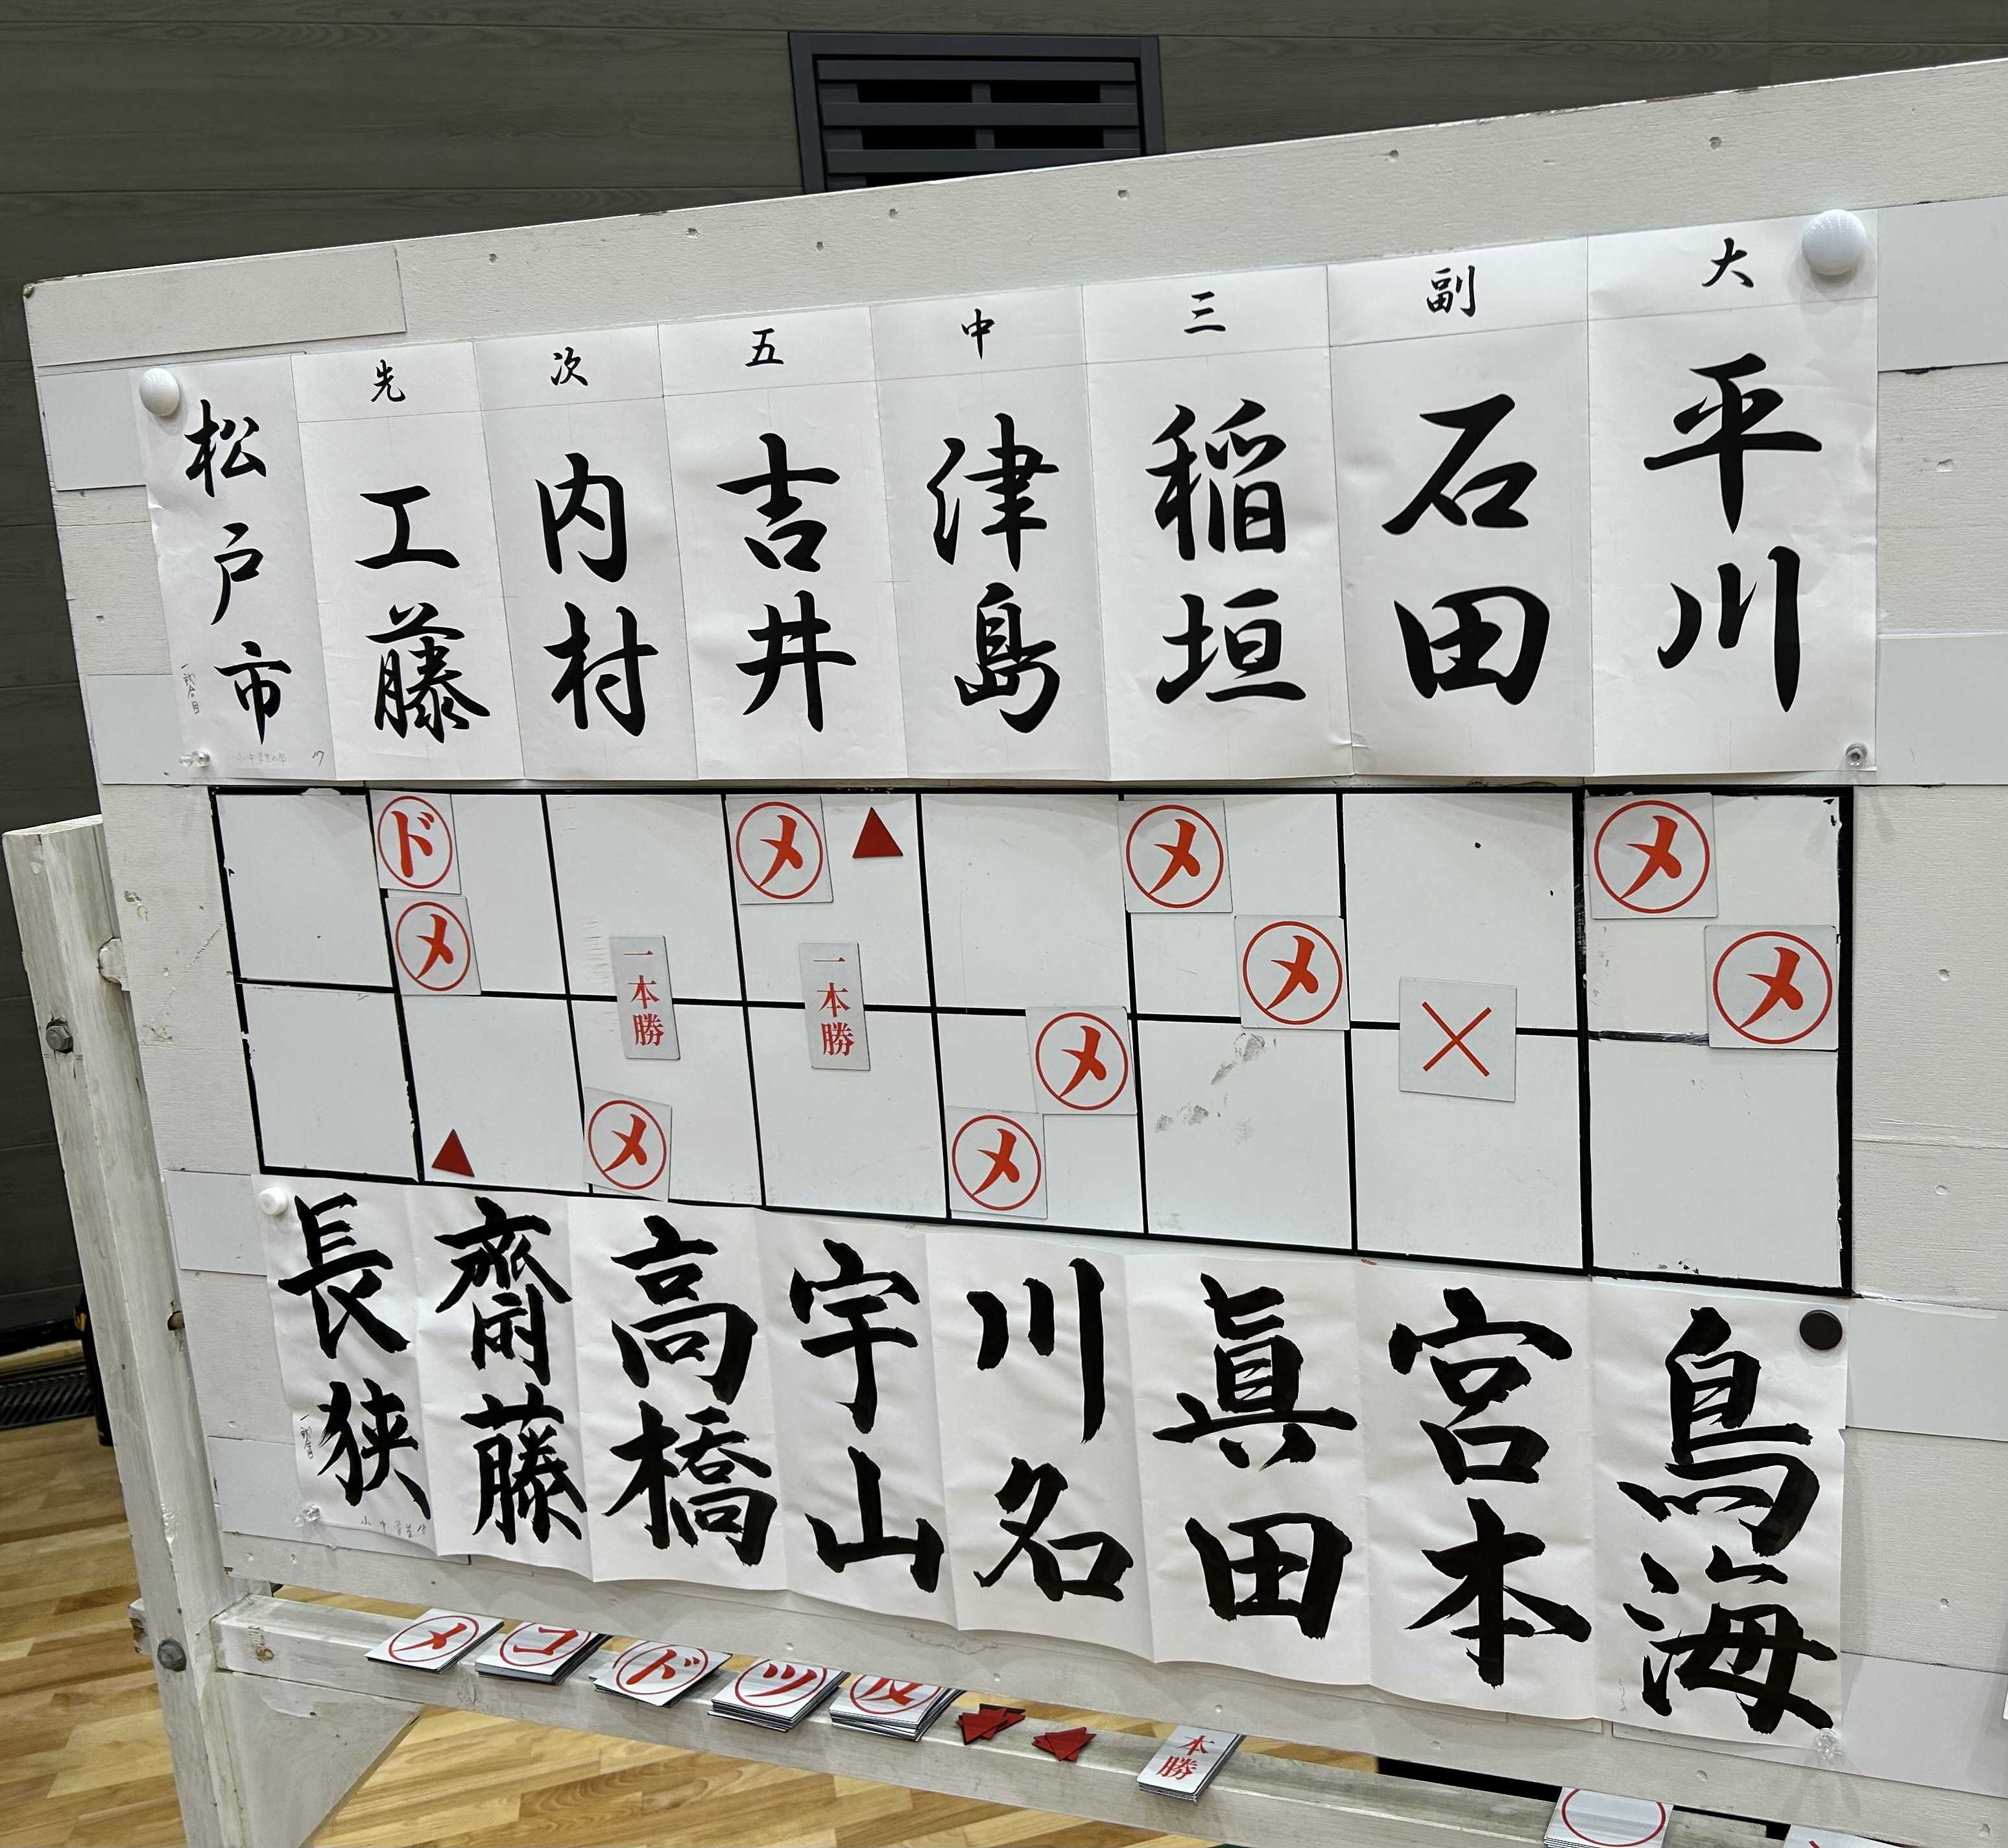 先
次
五
中
三
副
大
松戸市
工藤
内村
吉井
津島
稲垣
石田
平川
ド
メ
メ
メ
メ
メ
メ
一本勝
一本勝
メ
×
メ
メ
メ
長狭
齋藤
高橋
宇山
川名
眞田
宮本
鳥海
メ
コ
ド
ツ
反
本勝